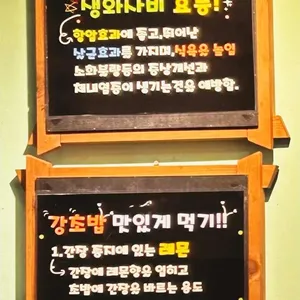 생와사비 효능!
항암효과에 좋고, 뛰어난
살균효과를 가지며, 식욕을 높임
소화불량등의 증상개선과
체내염증이 생기는것을 예방함.
강초밥 맛있게 먹기!!
1. 간장 종지에 있는 레몬
간장에 레몬향을 입히고
초밥에 간장을 바르는 용도